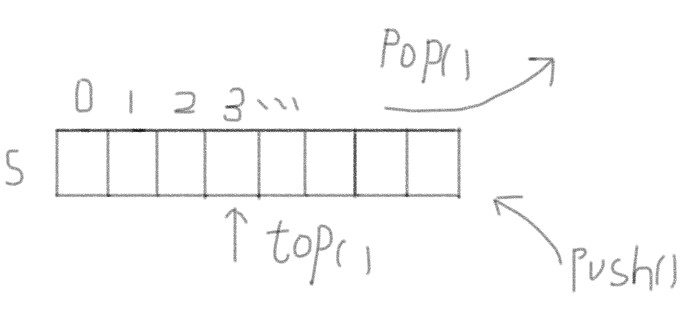 Pop()
0 1 2 3...
S
top()
push()